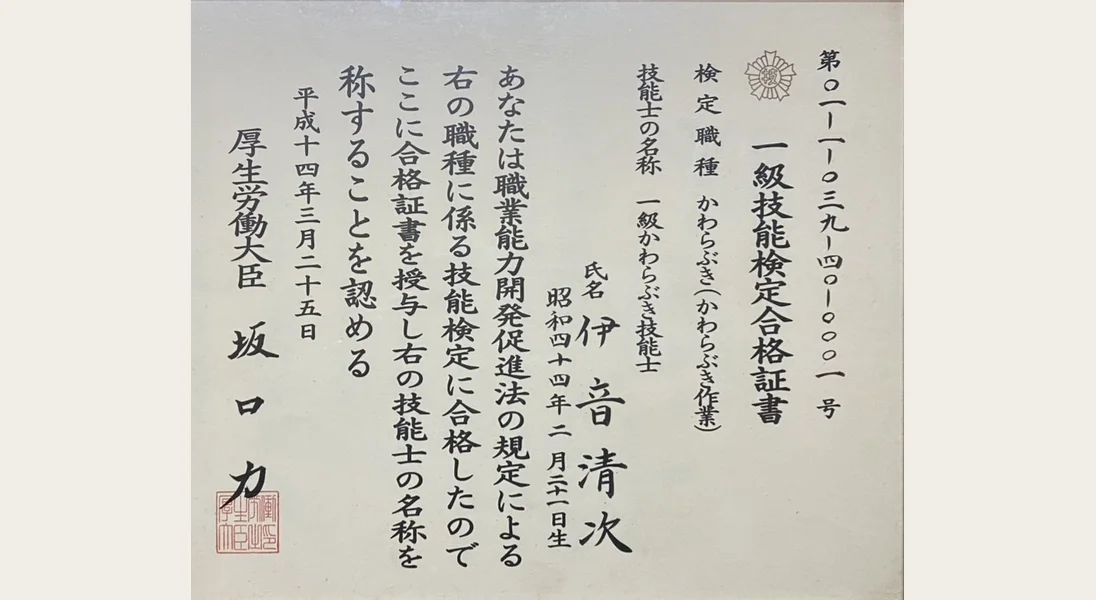 第〇一ー一ー〇三九ー四〇ー〇〇〇一号
一級技能検定合格証書
検定職種　かわらぶき(かわらぶき作業)
技能士の名称　一級かわらぶき技能士
氏名　伊音清次
昭和四十四年二月二十一日生
あなたは職業能力開発促進法の規定による
右の職種に係る技能検定に合格したので
ここに合格証書を授与し右の技能士の名称を
称することを認める
平成十四年三月二十五日
厚生労働大臣　坂口力